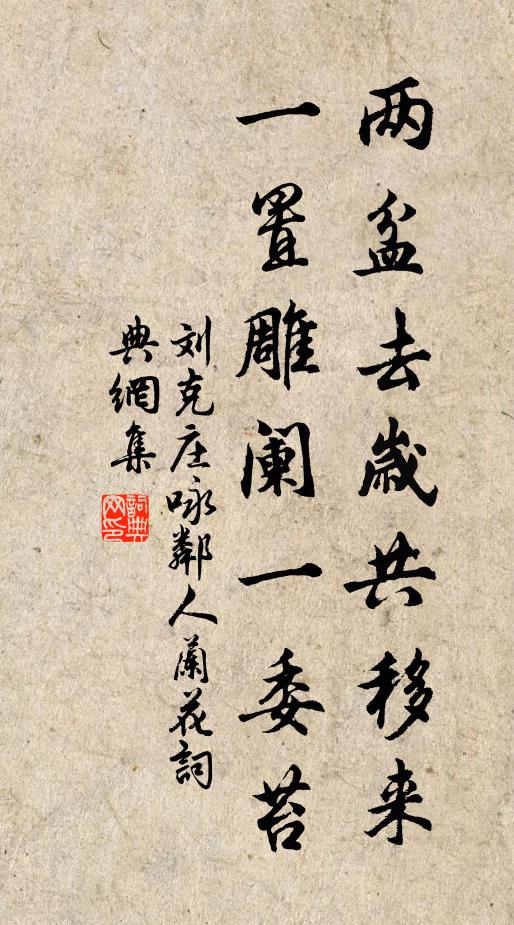 两盆去歲共移来
一置雕阑一委苔
刘克庄咏鄰人蘭花詞
典網集
詞典
网印